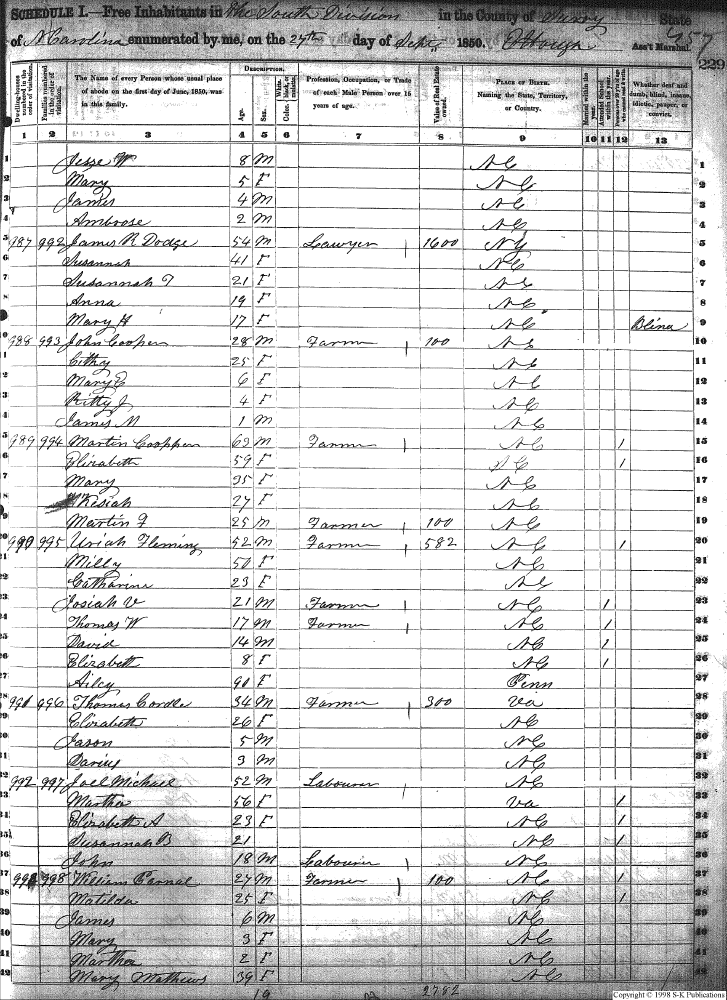 SCHEDULE I.—Free Inhabitants in the South Division in the County of Surry State
of N Carolina enumerated by me, on the 27th day of Sept, 1850. Ass't Marshal.
229
Dwelling-houses numbered in the order of visitation.
Families numbered in the order of visitation.
The Name of every Person whose usual place of abode on the first day of June, 1850, was in this family.
DESCRIPTION.
Age.
Sex.
Color, White, black, or mulatto.
Profession, Occupation, or Trade of each Male Person over 15 years of age.
Value of Real Estate owned.
PLACE OF BIRTH. Naming the State, Territory, or Country.
Married within the year.
Attended School within the year.
Whether deaf and dumb, blind, insane, idiotic, pauper, or convict.
1 2 3 4 5 6 7 8 9 10 11 12 13
1 Jesse W 8 M NC 1
2 Mary 5 F NC 2
3 James 4 M NC 3
4 Ambrose 2 M NC 4
5 987 992 James R Dodge 54 M Lawyer 1600 NY 5
6 Susannah 41 F NC 6
7 Susannah T 21 F NC 7
8 Anna 19 F NC 8
9 Mary H 17 F NC Blind 9
10 988 993 John Cooper 28 M Farm 100 NC 10
11 Cithy 25 F NC 11
12 Mary E 6 F NC 12
13 Kitty J 4 F NC 13
14 James M 1 M NC 14
15 989 994 Martin Coopper 63 M Farmer NC / 15
16 Elizabeth 59 F NC / 16
17 Mary 35 F NC 17
18 Kesiah 27 F NC 18
19 Martin F 25 M Farmer 100 NC 19
20 990 995 Uriah Fleming 52 M Farmer 582 NC / 20
21 Milly 50 F NC 21
22 Catharine 23 F NC 22
23 Josiah V 21 M Farmer NC / 23
24 Thomas W 17 M Farmer NC / 24
25 David 14 M NC / 25
26 Elizabeth 8 F NC / 26
27 Ailcy 90 F Penn 27
28 991 996 Thomas Cordle 34 M Farmer 300 Va 28
29 Elizabeth 26 F NC 29
30 Jason 5 M NC 30
31 Darius 3 M NC 31
32 992 997 Joel Michael 52 M Labourer NC 32
33 Martha 56 F Va / 33
34 Elizabeth A 23 F NC / 34
35 Susannah B 21 NC / 35
36 John 18 M Labourer NC 36
37 998 William Carnal 27 M Farmer 100 NC / 37
38 Matilda 25 F NC / 38
39 James 6 M NC 39
40 Mary 3 F NC 40
41 Martha 2 F NC 41
42 Mary Mathews 39 F NC 42
19 2782
Copyright © 1998 S-K Publications